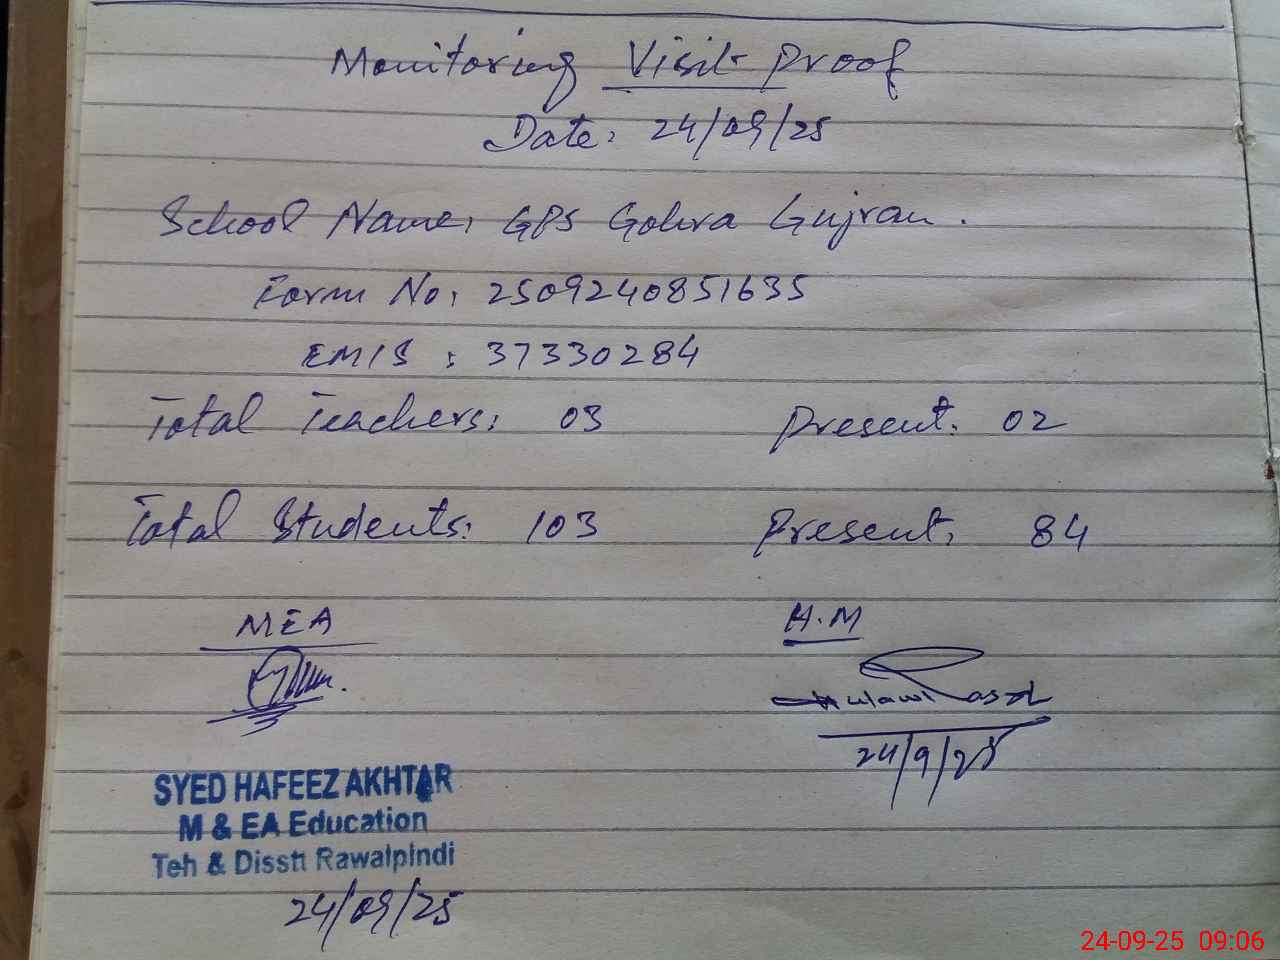 Monitoring Visit Proof
Date: 24/09/25
School Name: GPS Gohra Gujran.
Form No: 2509240851635
EMIS : 37330284
Total Teachers: 03 Present: 02
Total Students: 103 Present: 84
MEA H.M
24/9/25
SYED HAFEEZ AKHTAR
M & EA Education
Teh & Disstt Rawalpindi
24/09/25
24-09-25 09:06